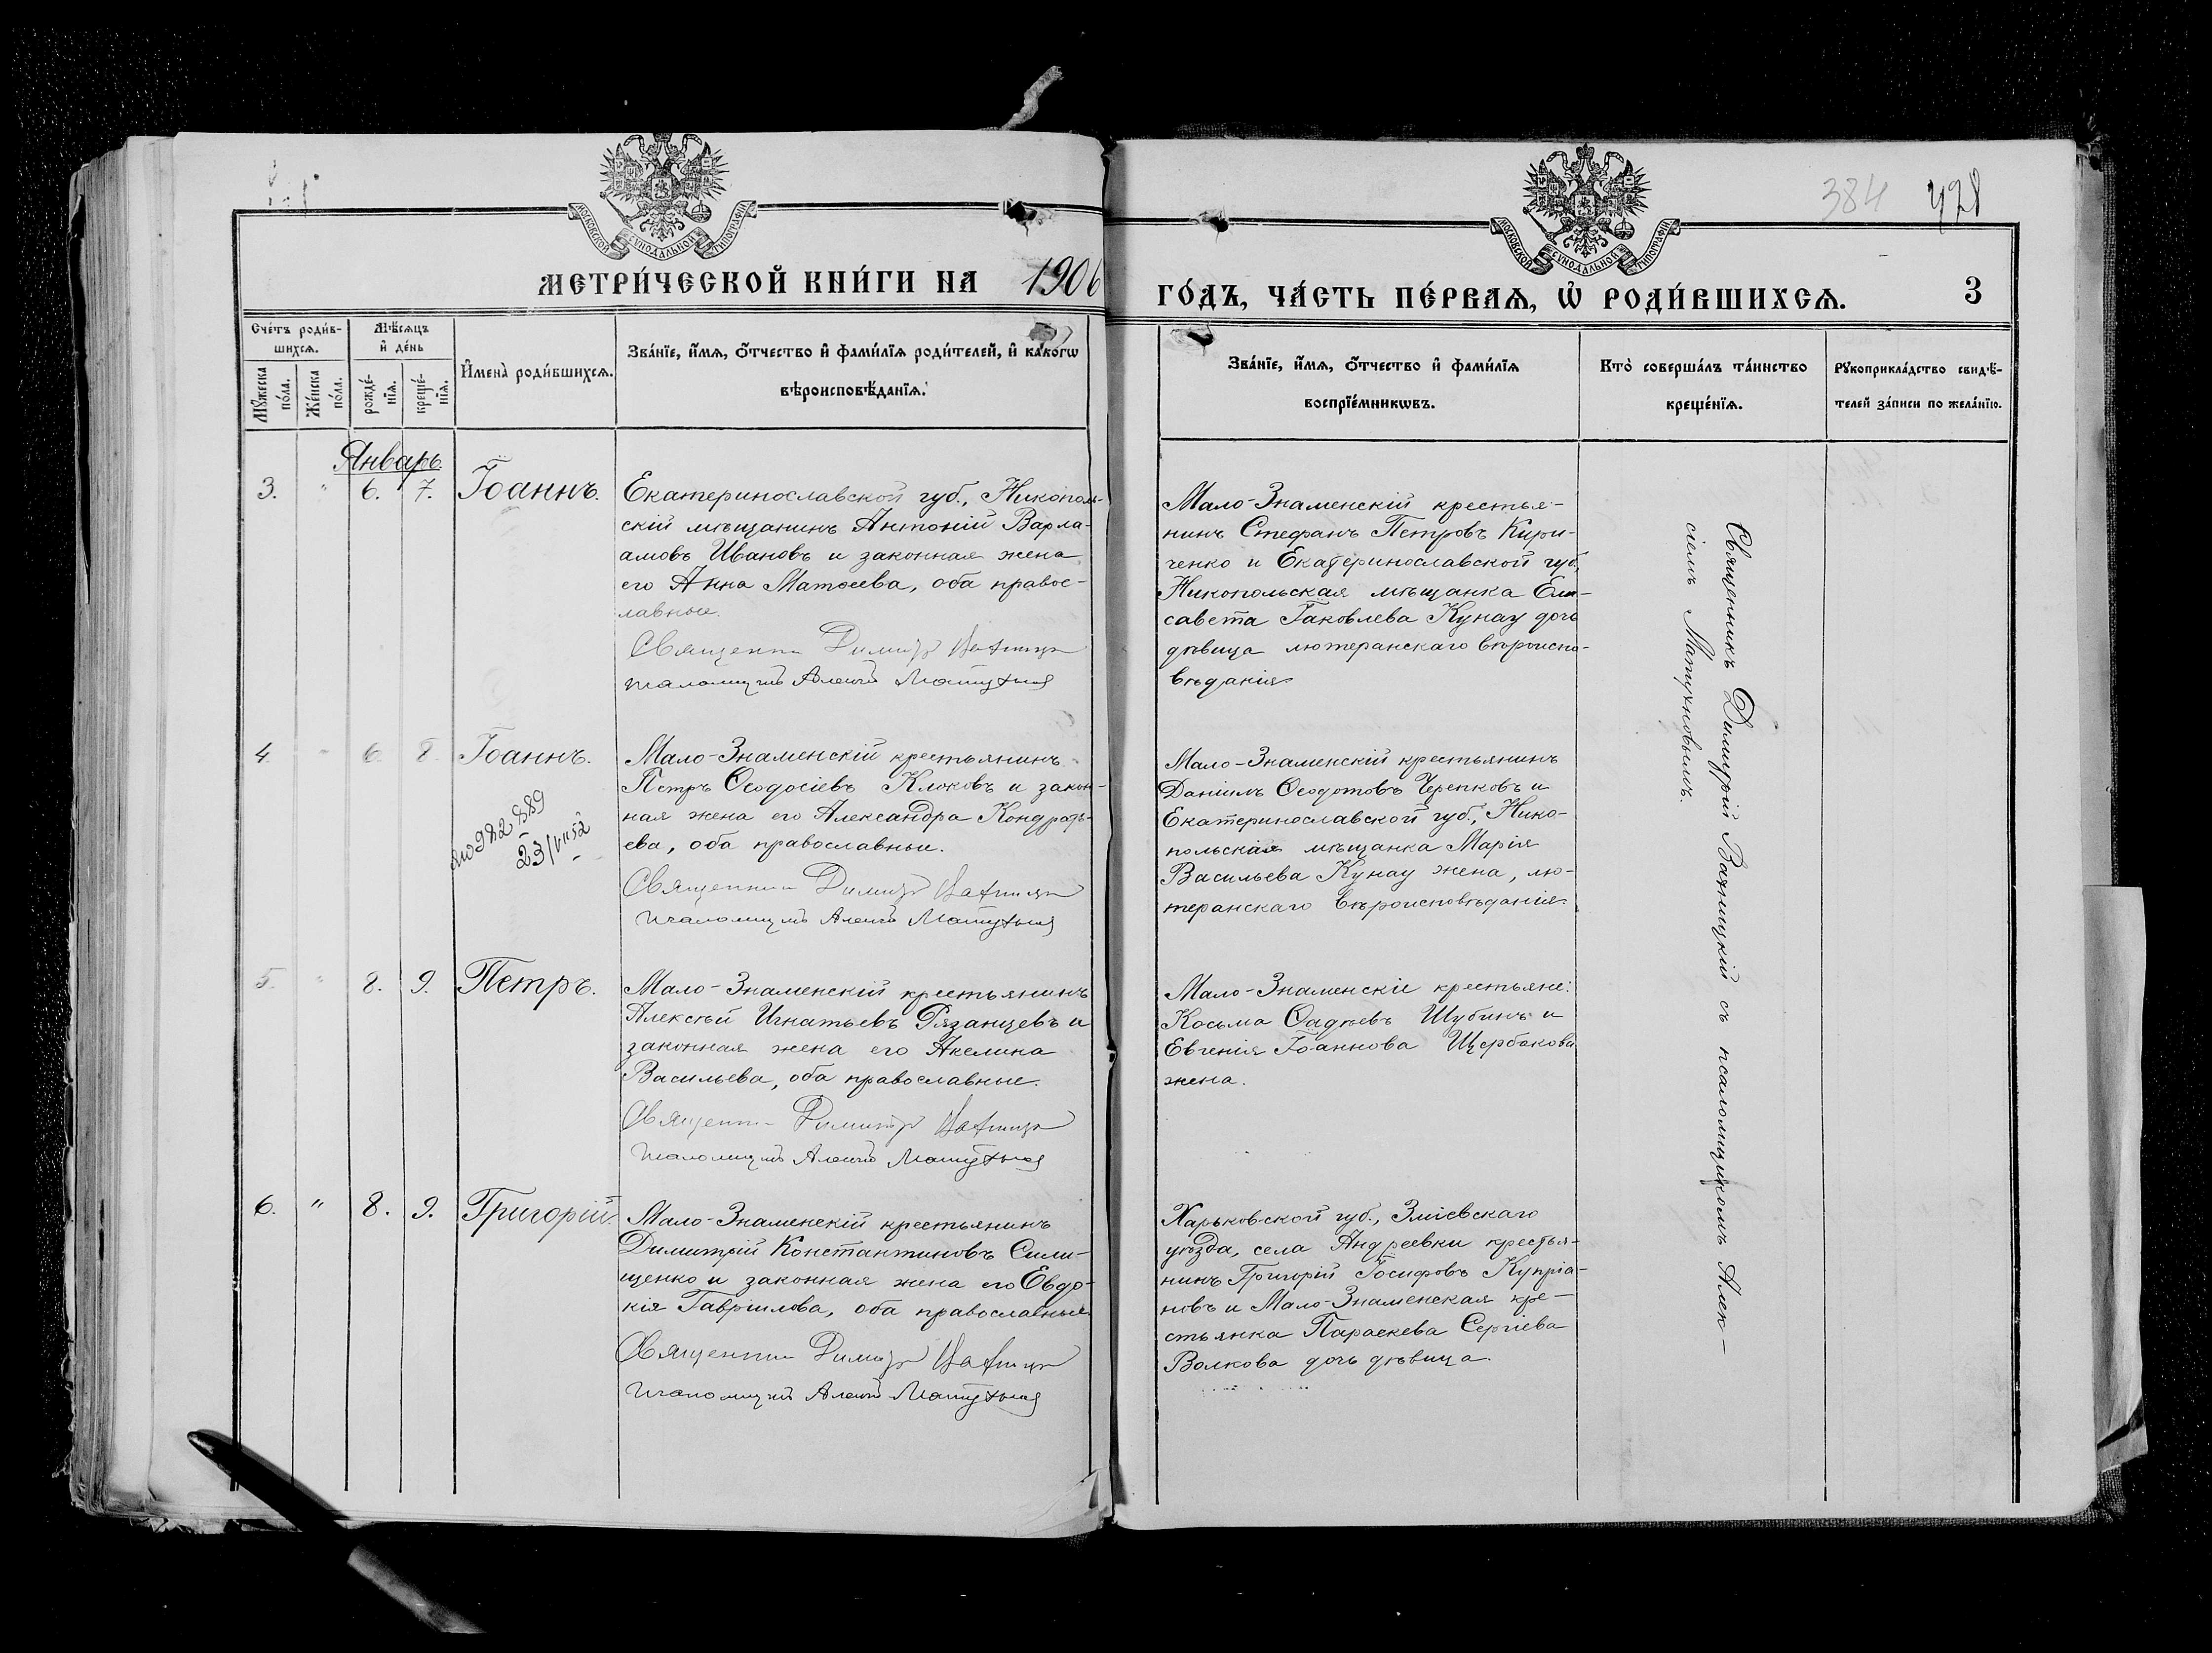 384 428
МОСКОВСКОЙ СѴНОДАЛЬНОЙ ТИПОГРАФІИ
МОСКОВСКОЙ СѴНОДАЛЬНОЙ ТИПОГРАФІИ
МЕТРИ́ЧЕСКОЙ КНИ́ГИ НА 1906
ГО́ДЪ, ЧА́СТЬ ПЕ́РВАѦ, Ѽ РОДИ́ВШИХСѦ. 3
Сче́тъ роди́в-
шихсѧ.
Мꙋ́жеска по́ла.
Же́нска по́ла.
Мѣ́сѧцъ
и҆ де́нь
рожде́-
нїѧ.
креще́-
нїѧ.
И҆мена̀ роди́вшихсѧ.
Зва́нїе, и҆́мѧ, о҆́тчество и҆ фами́лїѧ роди́телей, и҆ како́гѡ
вѣроисповѣ́данїѧ.
Зва́нїе, и҆́мѧ, о҆́тчество и҆ фами́лїѧ
воспрїе́мникѡвъ.
Кто̀ соверша́лъ та́инство
креще́нїѧ.
Рꙋкоприкла́дство свидѣ́-
телей за́писи по жела́нїю.
Январь.
3. " 6. 7. Іоаннъ.
Екатеринославской губ., Никополь-
скій мѣщанинъ Антоній Варла-
амовъ Ивановъ и законная жена
его Анна Матѳеева, оба правос-
лавные.
Священник Димитр
псаломщикъ Алексій Матухнов
Мало-Знаменскій крестья-
нинъ Стефанъ Петровъ Кири-
ченко и Екатеринославской губ.,
Никопольская мѣщанка Ели-
савета Іаковлева Кунау дочь
дѣвица лютеранскаго вѣроиспо-
вѣданія
4 " 6. 8. Іоаннъ.
982889
23/VII 52
Мало-Знаменскій крестьянинъ
Петръ Ѳеодосіевъ Клоковъ и закон-
ная жена его Александра Кондрать-
ева, оба православные.
Священник Димитр
псаломщикъ Алексій Матухнов
Мало-Знаменскій крестьянинъ
Даніилъ Ѳеодотовъ Черепковъ и
Екатеринославской губ., Нико-
польская мѣщанка Марія
Васильева Кунау жена, лю-
теранскаго вѣроисповѣданія.
5. " 8. 9. Петръ.
Мало-Знаменскій крестьянинъ
Алексѣй Игнатьевъ Рязанцевъ и
законная жена его Акелина
Васильева, оба православные.
Священник Димитр
псаломщикъ Алексій Матухнов
Мало-Знаменскіе крестьяне:
Косьма Ѳадѣевъ Шубинъ и
Евгенія Іоаннова Щербакова
жена.
6. " 8. 9. Григорій.
Мало-Знаменскій крестьянинъ
Димитрій Константиновъ Сили-
щенко и законная жена его Евдо-
кія Гавріилова, оба православные
Священник Димитр
псаломщикъ Алексій Матухнов
Харьковской губ., Зміевскаго
уѣзда, села Андреевки крестья-
нинъ Григорій Іосифовъ Купріа-
новъ и Мало-Знаменская кре-
стьянка Параскева Сергіева
Волкова дочь дѣвица.
Священникъ Димитрій съ псаломщикомъ Алек-
сіемъ Матухновымъ.